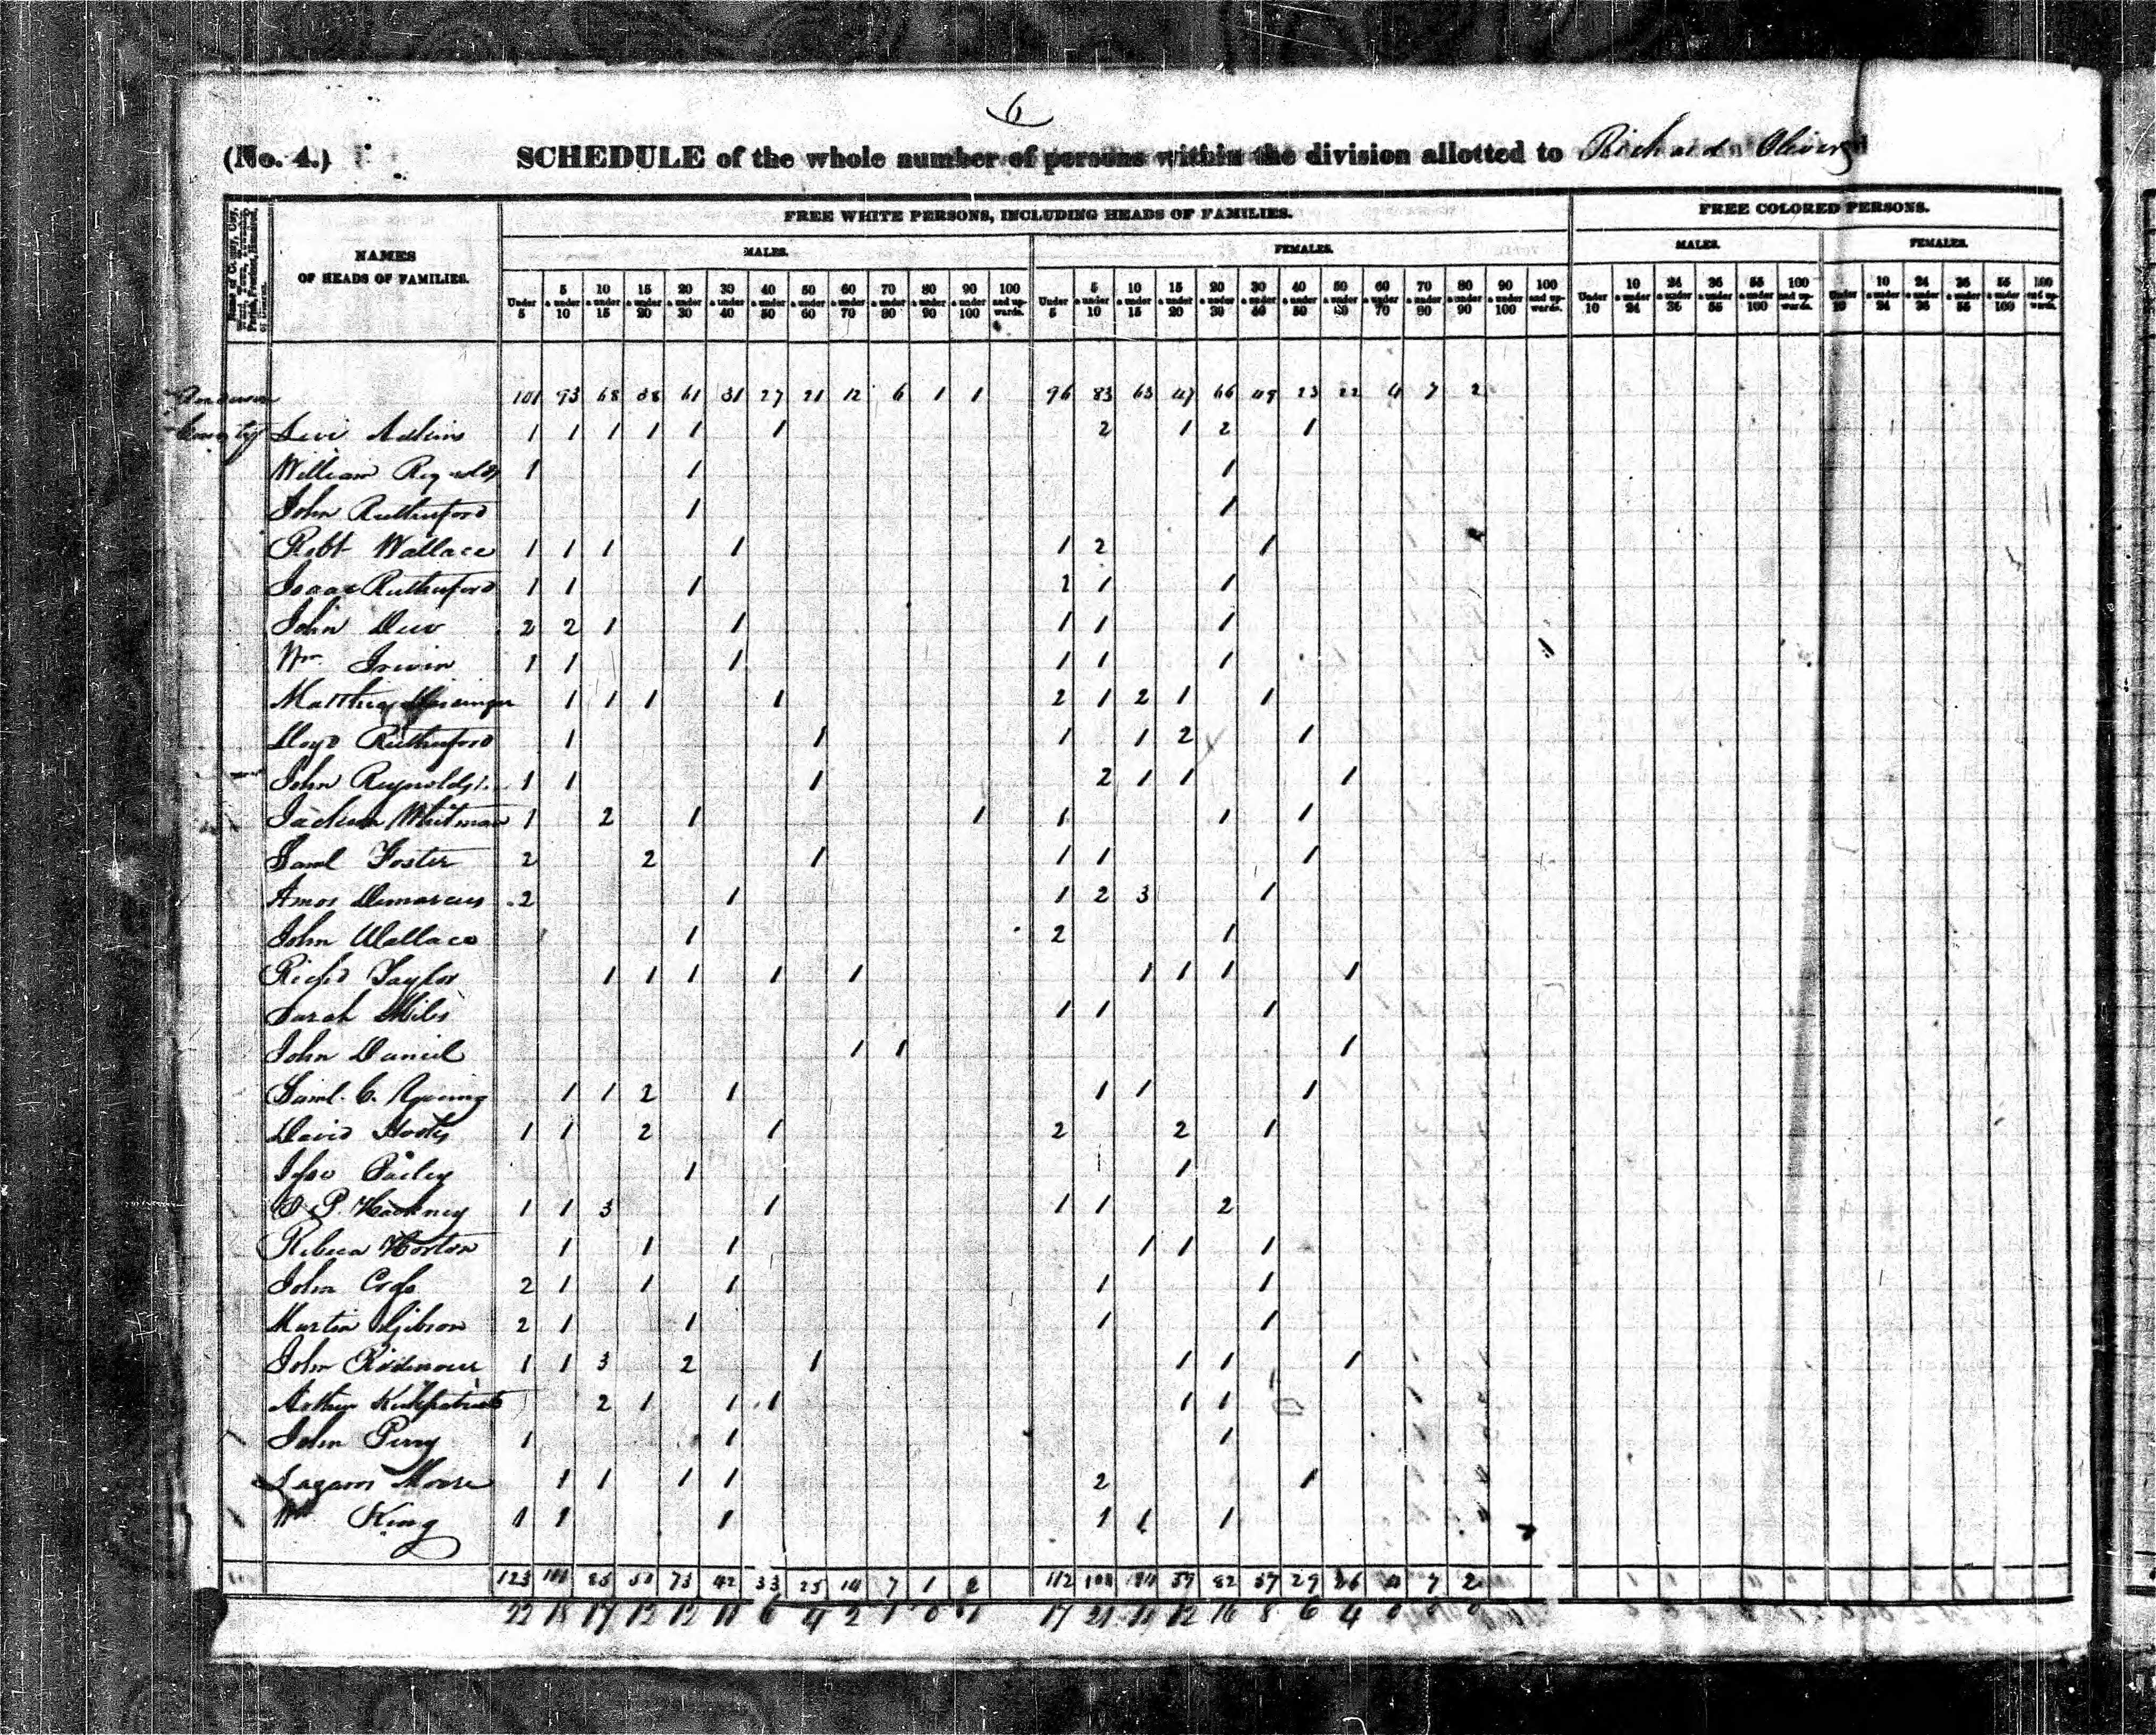 6
(No. 4.) SCHEDULE of the whole number of persons within the division allotted to Richard Oliver
NAMES OF HEADS OF FAMILIES.
FREE WHITE PERSONS, INCLUDING HEADS OF FAMILIES.
FREE COLORED PERSONS.
MALES. FEMALES. MALES. FEMALES.
Under 5 5 & under 10 10 & under 15 15 & under 20 20 & under 30 30 & under 40 40 & under 50 50 & under 60 60 & under 70 70 & under 80 80 & under 90 90 & under 100 100 and upwards. Under 5 5 & under 10 10 & under 15 15 & under 20 20 & under 30 30 & under 40 40 & under 50 50 & under 60 60 & under 70 70 & under 80 80 & under 90 90 & under 100 100 and upwards. Under 10 10 & under 24 24 & under 36 36 & under 55 55 & under 100 100 and upwards. Under 10 10 & under 24 24 & under 36 36 & under 55 55 & under 100 100 and upwards.
101 93 68 38 61 31 27 21 12 6 1 1 96 83 63 47 66 49 23 22 4 7 2
County Levi Adkins 1 1 1 1 1 1 2 1 2 1
William Reynolds 1 1 1
John Rutherford 1 1
Robt Wallace 1 1 1 1 1 2 1
Isaac Rutherford 1 1 1 2 1 1
John Dew 2 2 1 1 1 1 1
Wm Irwin 1 1 1 1 1 1
Matthias 1 1 1 1 2 1 2 1 1
Lloyd Rutherford 1 1 1 1 2 1
John Reynolds 1 1 1 2 1 1 1
Jackson Whitman 1 2 1 1 1 1 1
Saml Foster 2 2 1 1 1 1
Amos Demarcus 2 1 1 2 3 1
John Wallace 1 2 1
Richd Taylor 1 1 1 1 1 1 1 1 1
Sarah Miles 1 1 1
John Daniel 1 1 1
Saml. C. 1 1 2 1 1 1 1
David 1 1 2 1 2 2 1
Bailey 1 1
P. Hackney 1 1 3 1 1 1 2
Rebeca Horton 1 1 1 1 1 1
John Cross 2 1 1 1 1 1
Martin Gibson 2 1 1 1 1
John Ridenour 1 1 3 2 1 1 1 1
Arthur Kirkpatrick 2 1 1 1 1 1
John Perry 1 1 1
Lazarus Moore 1 1 1 1 2 1
Wm King 1 1 1 1 1 1
123 73 42 33 25 14 7 1 2 112 104 59 82 57 29 26 4 7 2
22 18 17 12 12 11 6 4 2 1 0 1 17 21 11 12 16 8 6 4 0 0 0